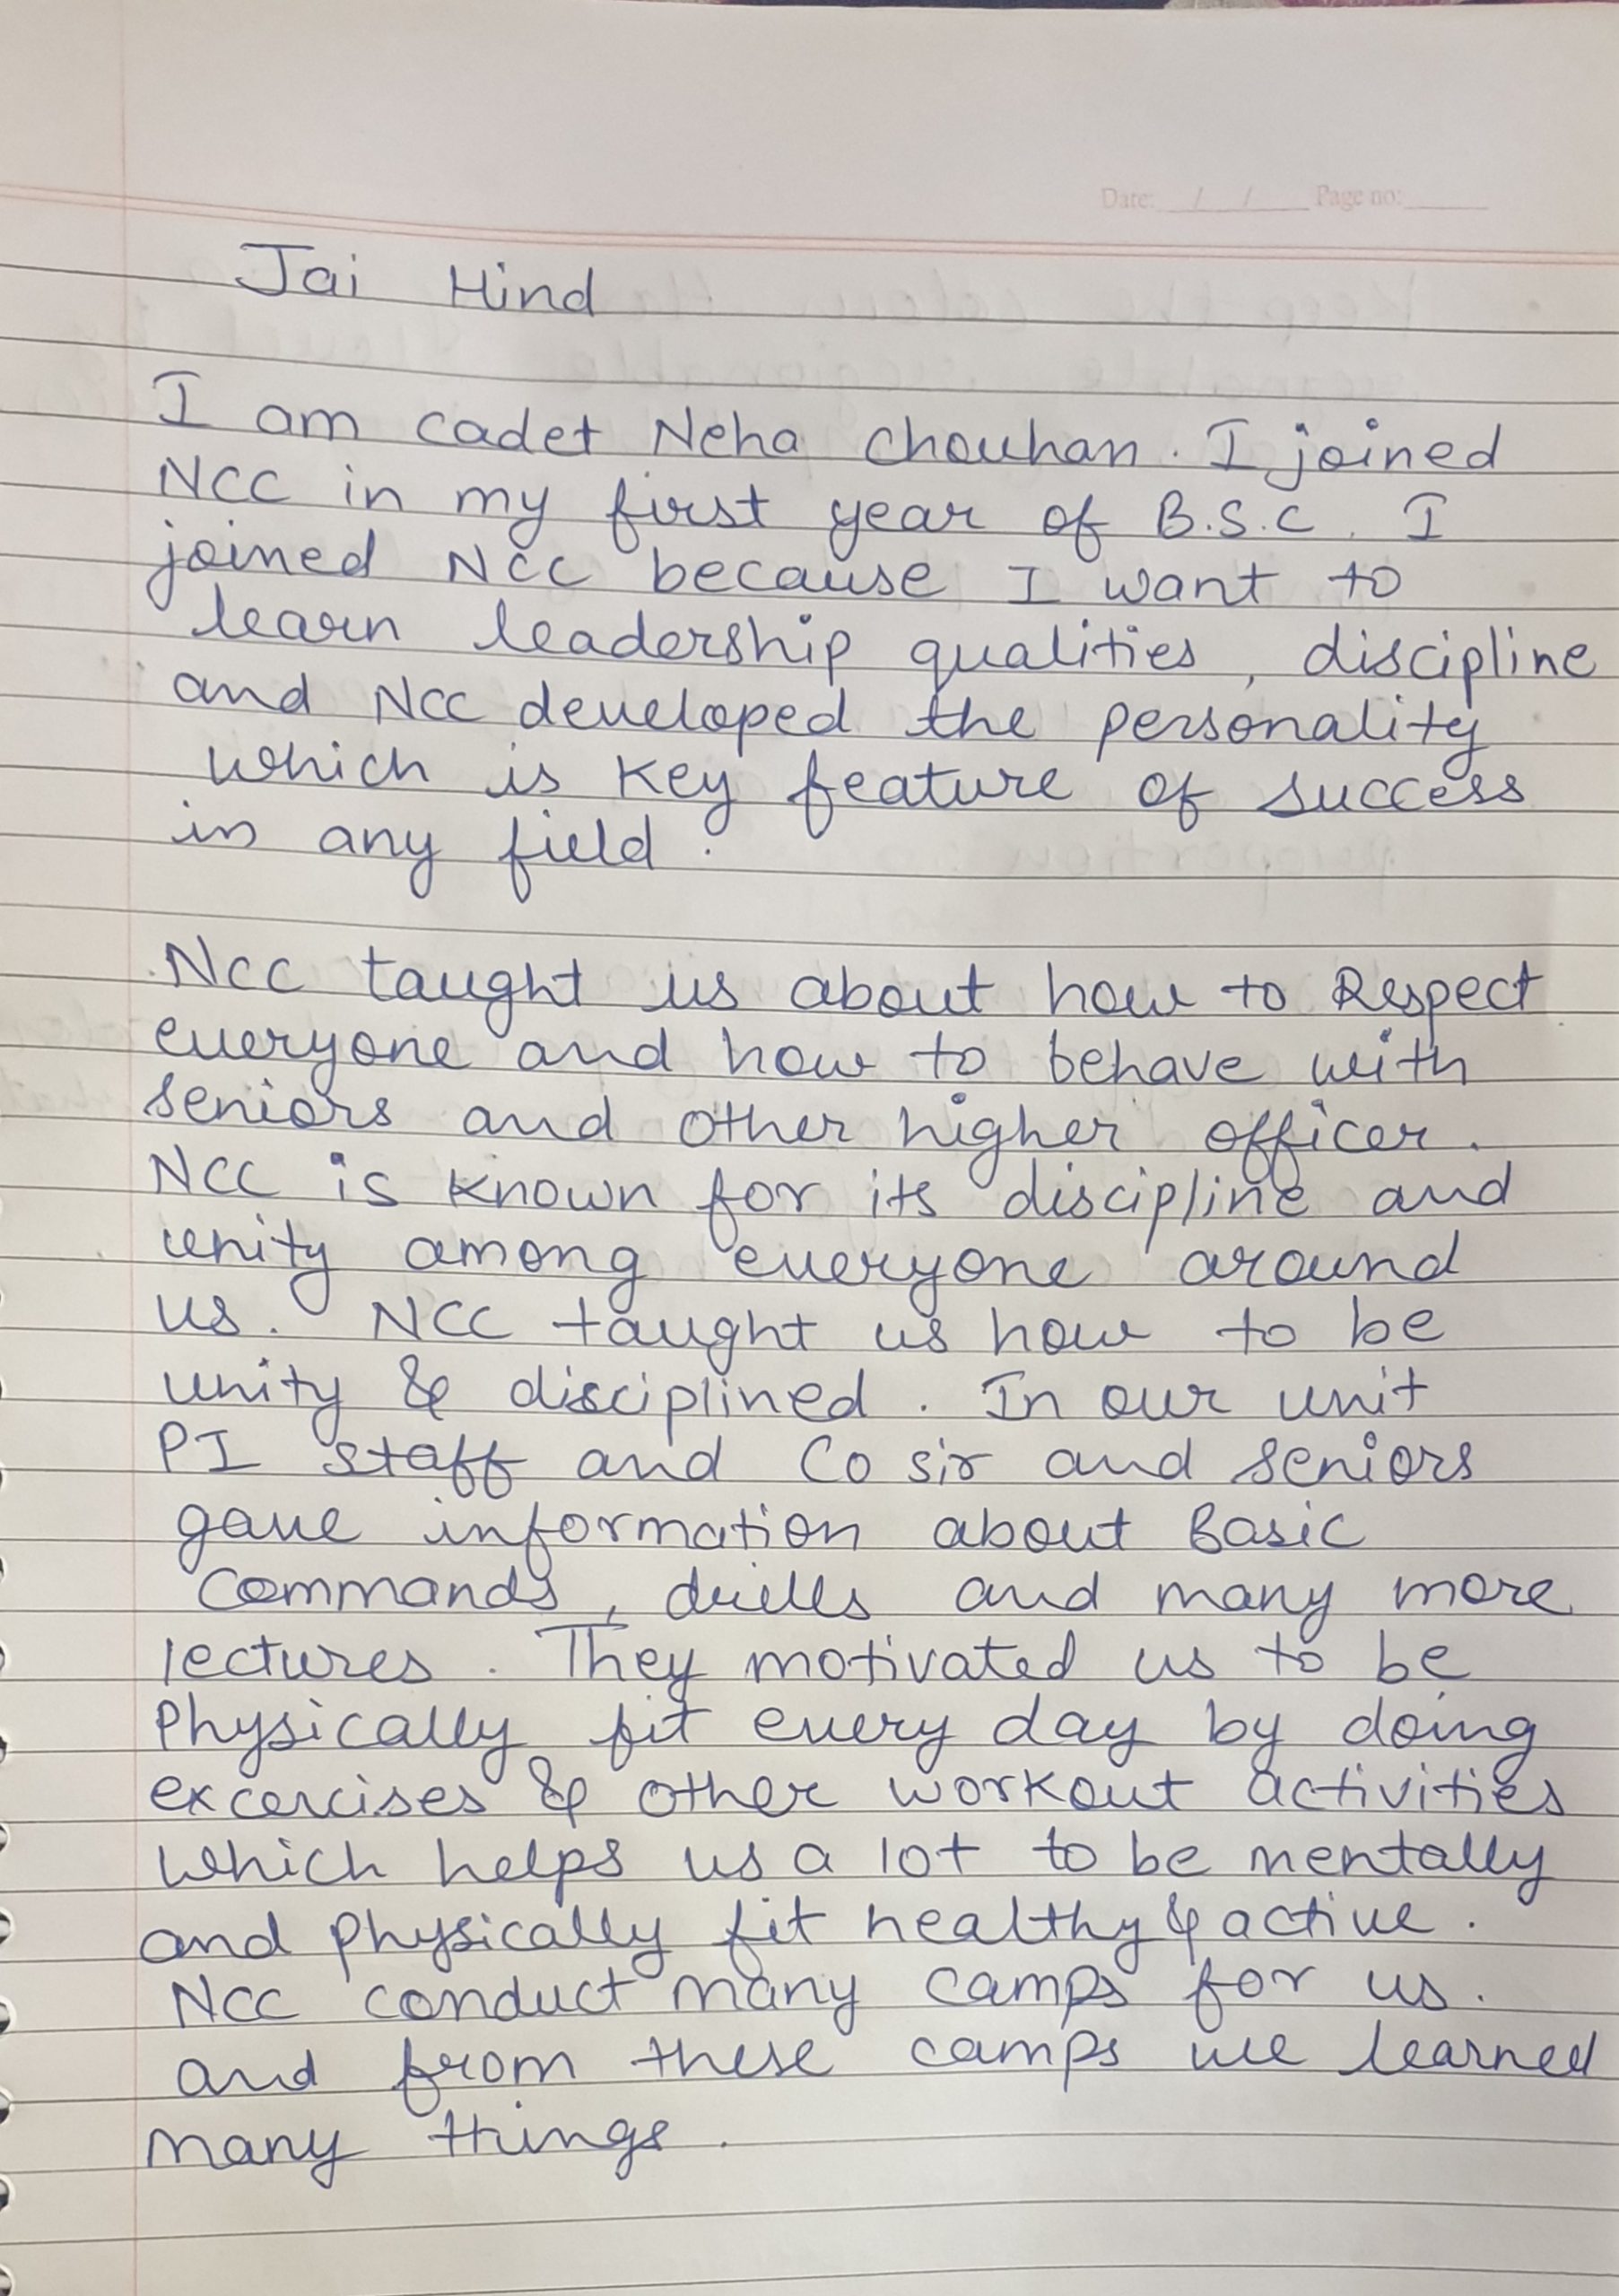 Date: / / Page no:
Jai Hind
I am cadet Neha Chouhan. I joined
NCC in my first year of B.S.C. I
joined NCC because I want to
learn leadership qualities, discipline
and NCC developed the personality
which is key feature of success
in any field.
NCC taught us about how to Respect
everyone and how to behave with
seniors and other higher officer.
NCC is known for its discipline and
unity among everyone around
us. NCC taught us how to be
unity & disciplined. In our unit
PI staff and Co sir and seniors
gave information about Basic
Commands, drills and many more
lectures. They motivated us to be
Physically fit every day by doing
excercises & other workout activities
which helps us a lot to be mentally
and physically fit healthy & active.
NCC conduct many camps for us.
and from these camps we learned
many things.